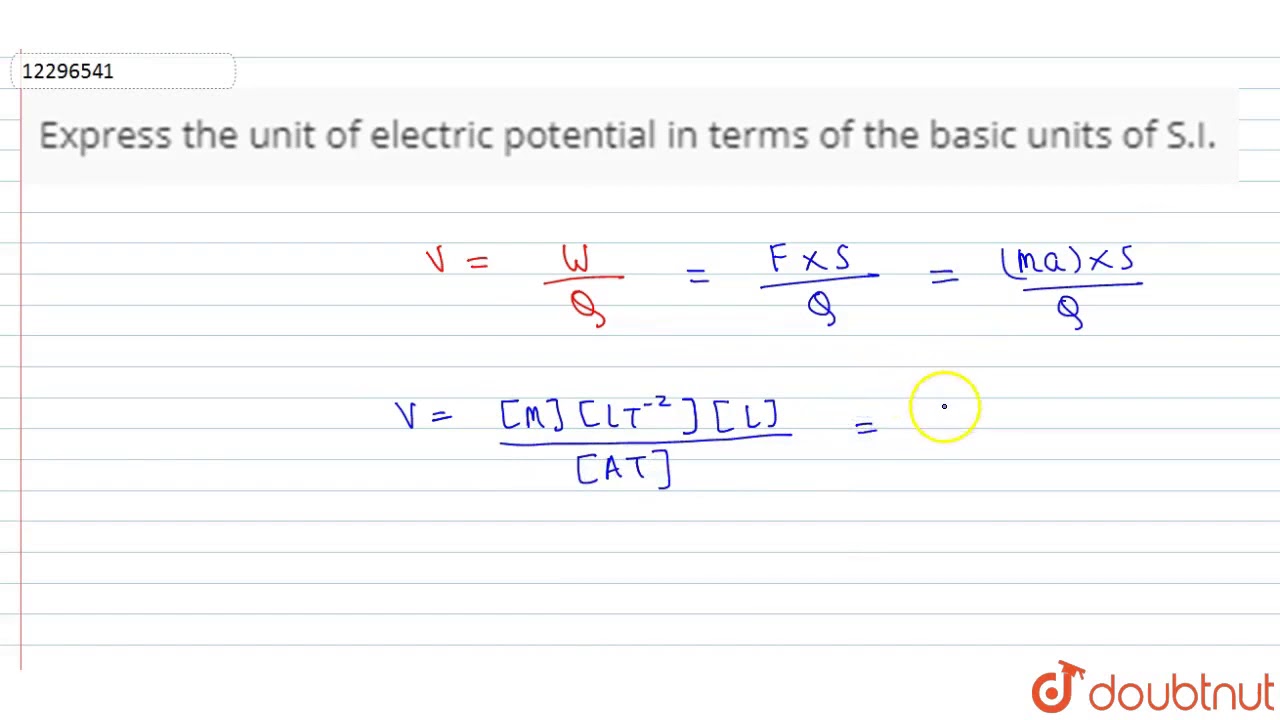 12296541
Express the unit of electric potential in terms of the basic units of S.I.
V = W/Q = F×S/Q = (ma)×S/Q
V = [M][LT⁻²][L]/[AT] =
doubtnut